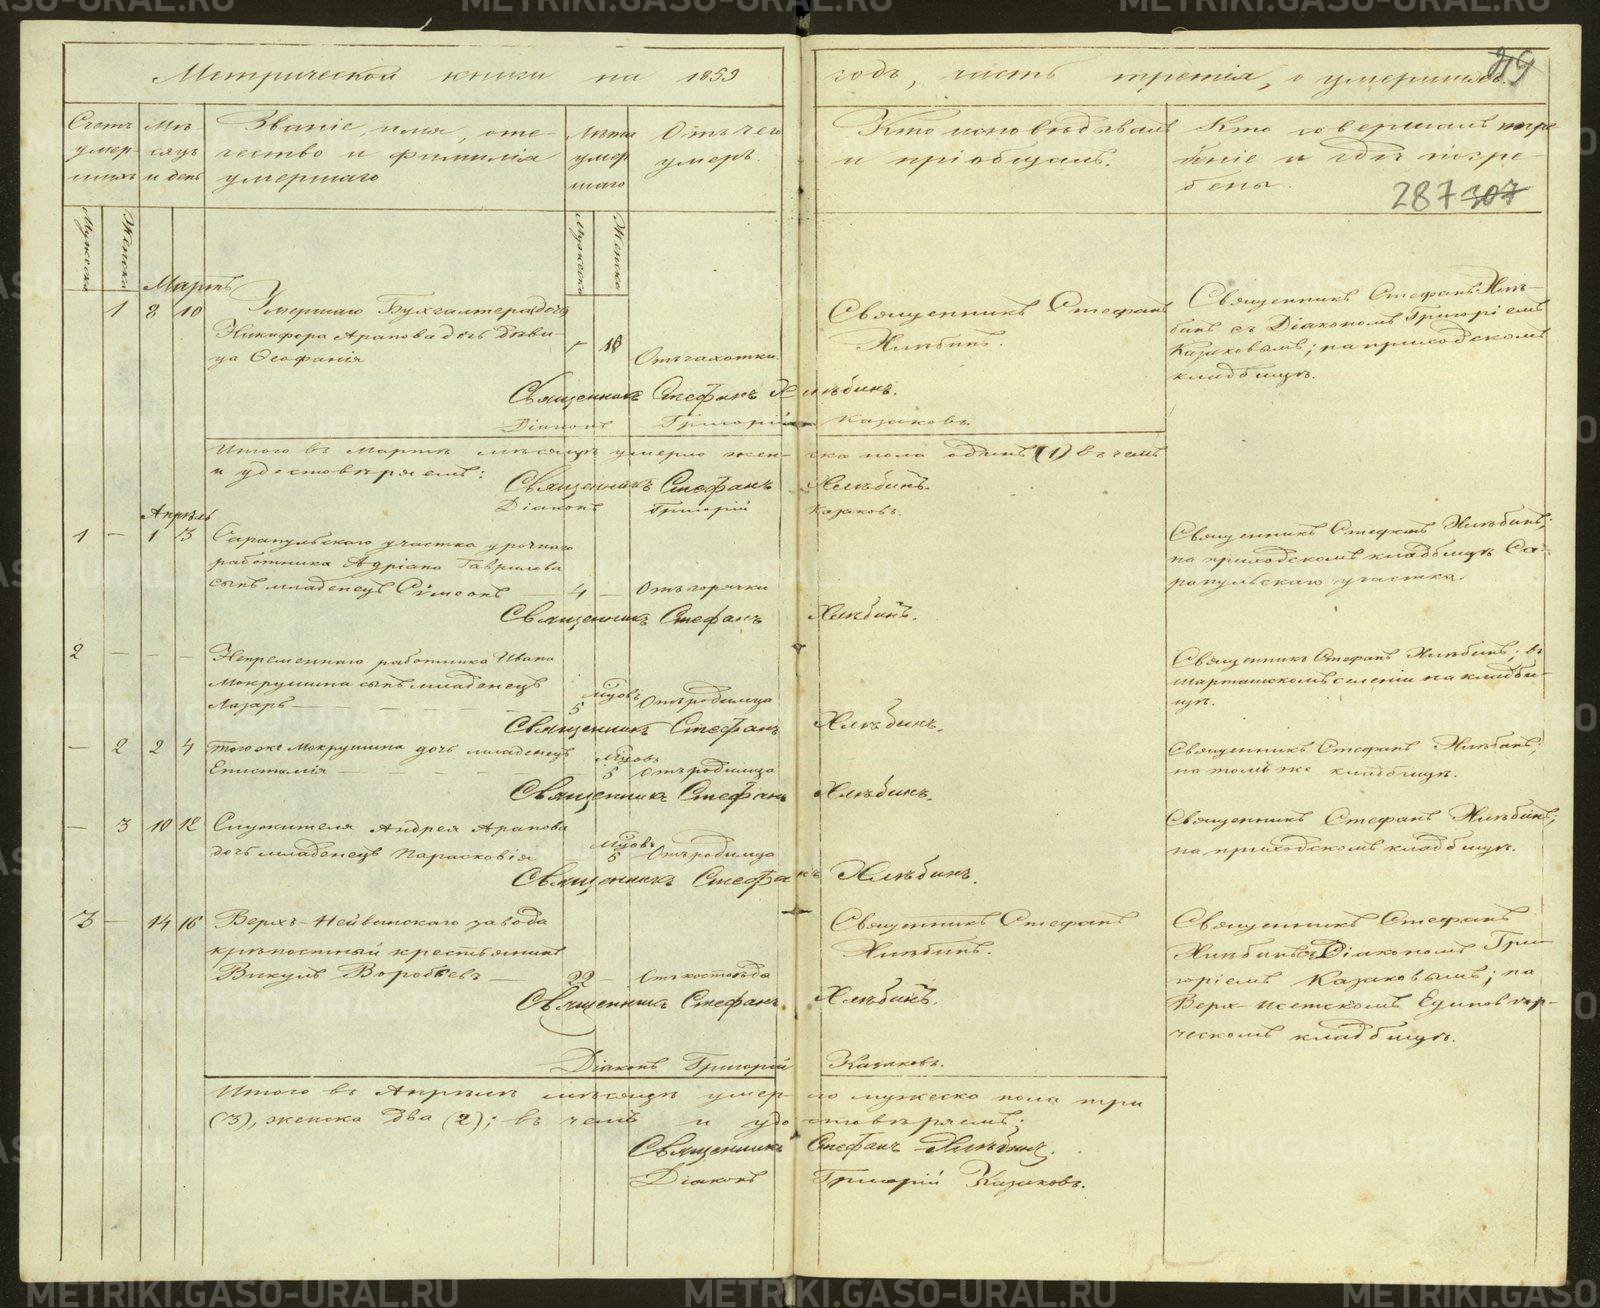 Метрической книги на 1859 годъ, часть третія, о умершихъ.
287 307
Счетъ умер-шихъ
Мѣ-сяцъ и день
Званіе, имя, оте-
чество и фамилія
умершаго
Лѣта умер-шаго
Отъ чего
умеръ.
Кто исповѣдывалъ
и пріобщалъ.
Кто совершалъ погре-
беніе и гдѣ погре-
бены.
Мужеска
Женска
Мужеска
Женска
Мартъ
1 8 10 Умершаго Бухгалтера
Никифора Арапова дочь дѣви-
ца Ѳеофанія
18 Отъ чахотки.
Священникъ Стефанъ
Хлѣбинъ.
Священникъ Стефанъ Хлѣ-
бинъ съ Діакономъ Григоріемъ
Казаковымъ; на приходскомъ
кладбищѣ.
Священникъ Стефанъ Хлѣбинъ.
Діаконъ Григорій Казаковъ.
Итого въ Мартѣ мѣсяцѣ умерло жен-ска пола одинъ (1) въ чемъ
и удостовѣряемъ:
Священникъ Стефанъ Хлѣбинъ.
Діаконъ Григорій Казаковъ.
Апрѣль
1 — 1 3 Сарапульскаго участка урочнаго
работника Адріана Гаврилова
сынъ младенецъ Сѵмеонъ — 4 — Отъ горячки
Священникъ Стефанъ Хлѣбинъ;
на приходскомъ кладбищѣ Са-
рапульскаго участка.
Священникъ Стефанъ Хлѣбинъ.
2 — — — Непременнаго работника Ивана
Мокрушина сынъ младенецъ
Лазарь — мцовъ 5 Отъ родимца
Священникъ Стефанъ Хлѣбинъ; въ
Шарташскомъ селеніи на кладби-
щѣ.
Священникъ Стефанъ Хлѣбинъ.
— 2 2 4 Тогоже Мокрушина дочь младенецъ
Епистимія — мцовъ 5 Отъ родимца
Священникъ Стефанъ Хлѣбинъ;
на томъ же кладбищѣ.
Священникъ Стефанъ Хлѣбинъ.
— 3 10 12 Служителя Андрея Арапова
дочь младенецъ Парасковія мцовъ 6 Отъ родимца
Священникъ Стефанъ Хлѣбинъ;
на приходскомъ кладбищѣ.
Священникъ Стефанъ Хлѣбинъ.
3 — 14 16 Верхъ-Нейвинскаго завода
крѣпостный крестьянинъ
Викулъ Воробьевъ — 22 — Отъ костоѣда
Священникъ Стефанъ
Хлѣбинъ.
Священникъ Стефанъ
Хлѣбинъ съ Діакономъ Гри-
горіемъ Казаковымъ; на
Верх-Исетскомъ Единовѣр-
ческомъ кладбищѣ.
Священникъ Стефанъ Хлѣбинъ.
Діаконъ Григорій Казаковъ.
Итого въ Апрѣлѣ мѣсяцѣ умер-ло мужеска пола три
(3), женска два (2); въ чемъ и удо-стовѣряемъ:
Священникъ Стефанъ Хлѣбинъ.
Діаконъ Григорій Казаковъ.
METRIKI.GASO-URAL.RU